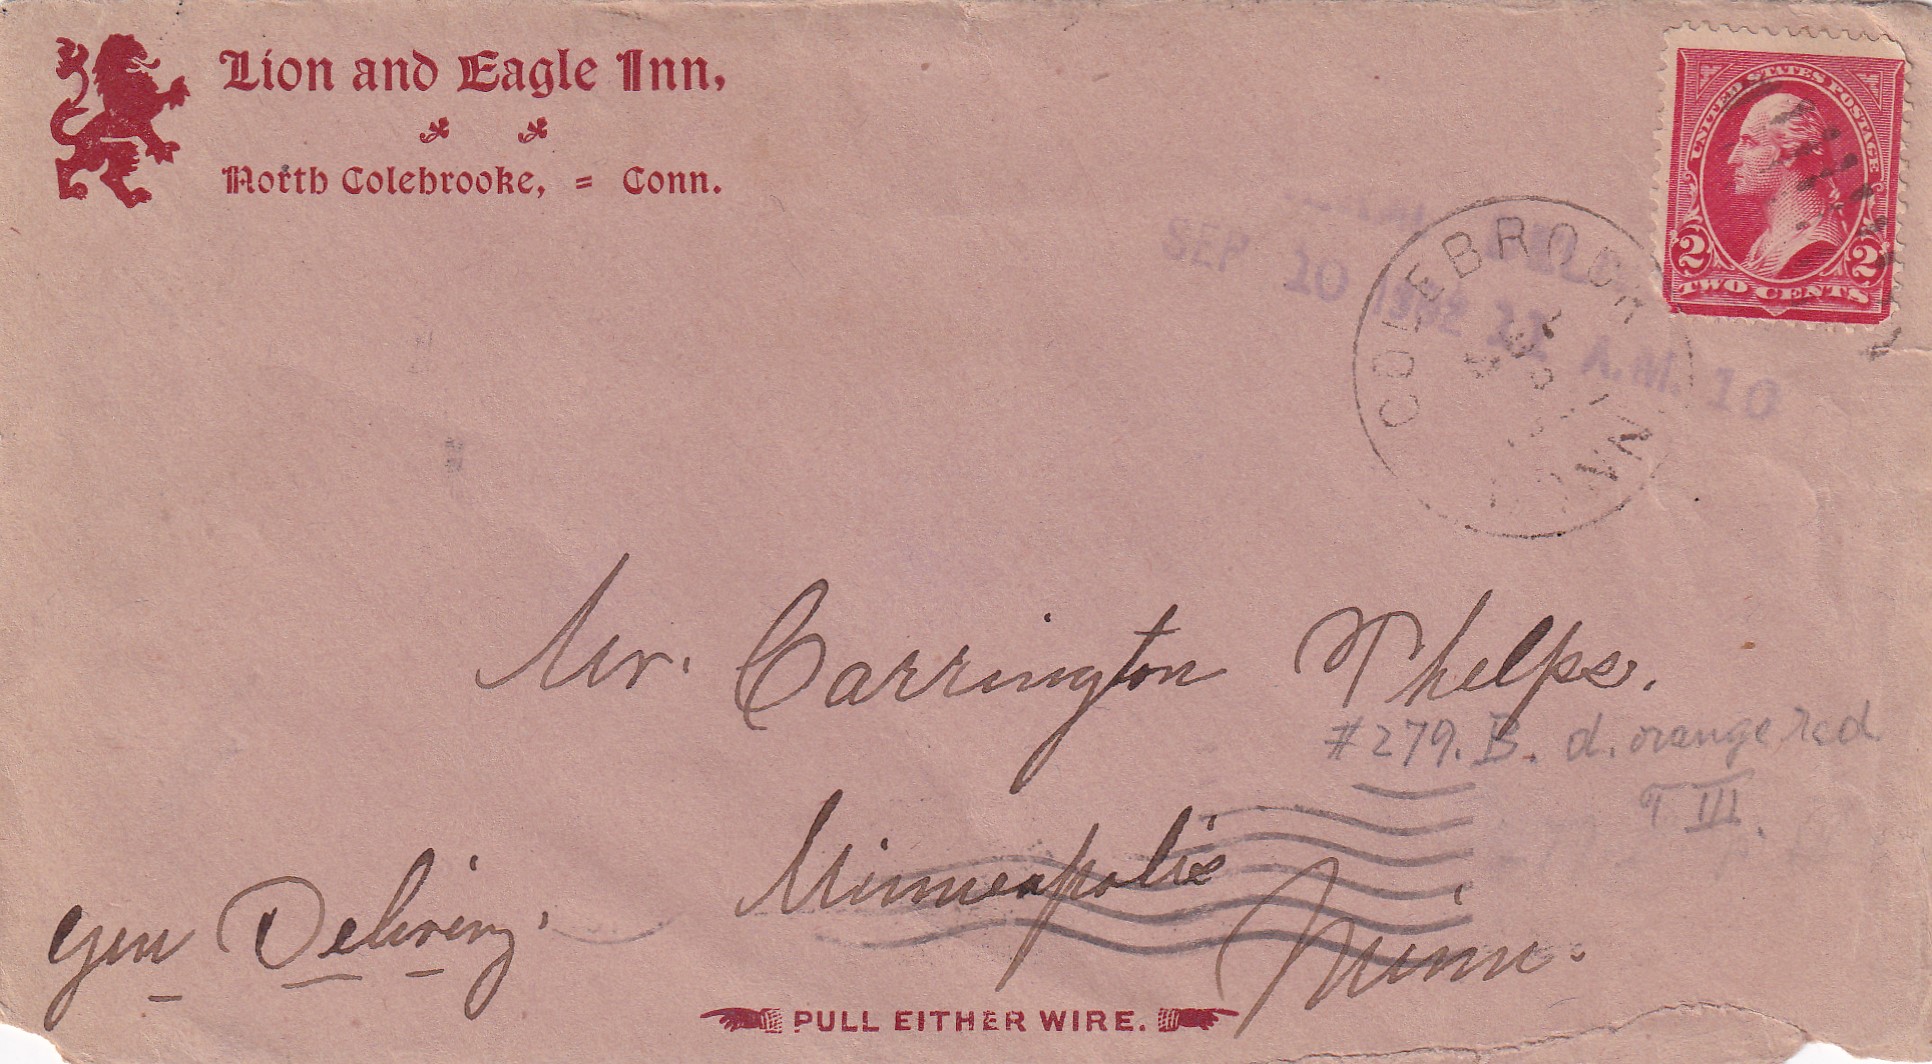 Lion and Eagle Inn,
North Colebrooke, = Conn.
UNITED STATES POSTAGE
2 2
TWO CENTS
SEP 10 1902 11 A.M. 10
COLEBROOK
SEP
CONN
Mr. Carrington Phelps.
#279. B. d. orange red
T III.
Minneapolis
Minn.
Gen Delivery.
PULL EITHER WIRE.